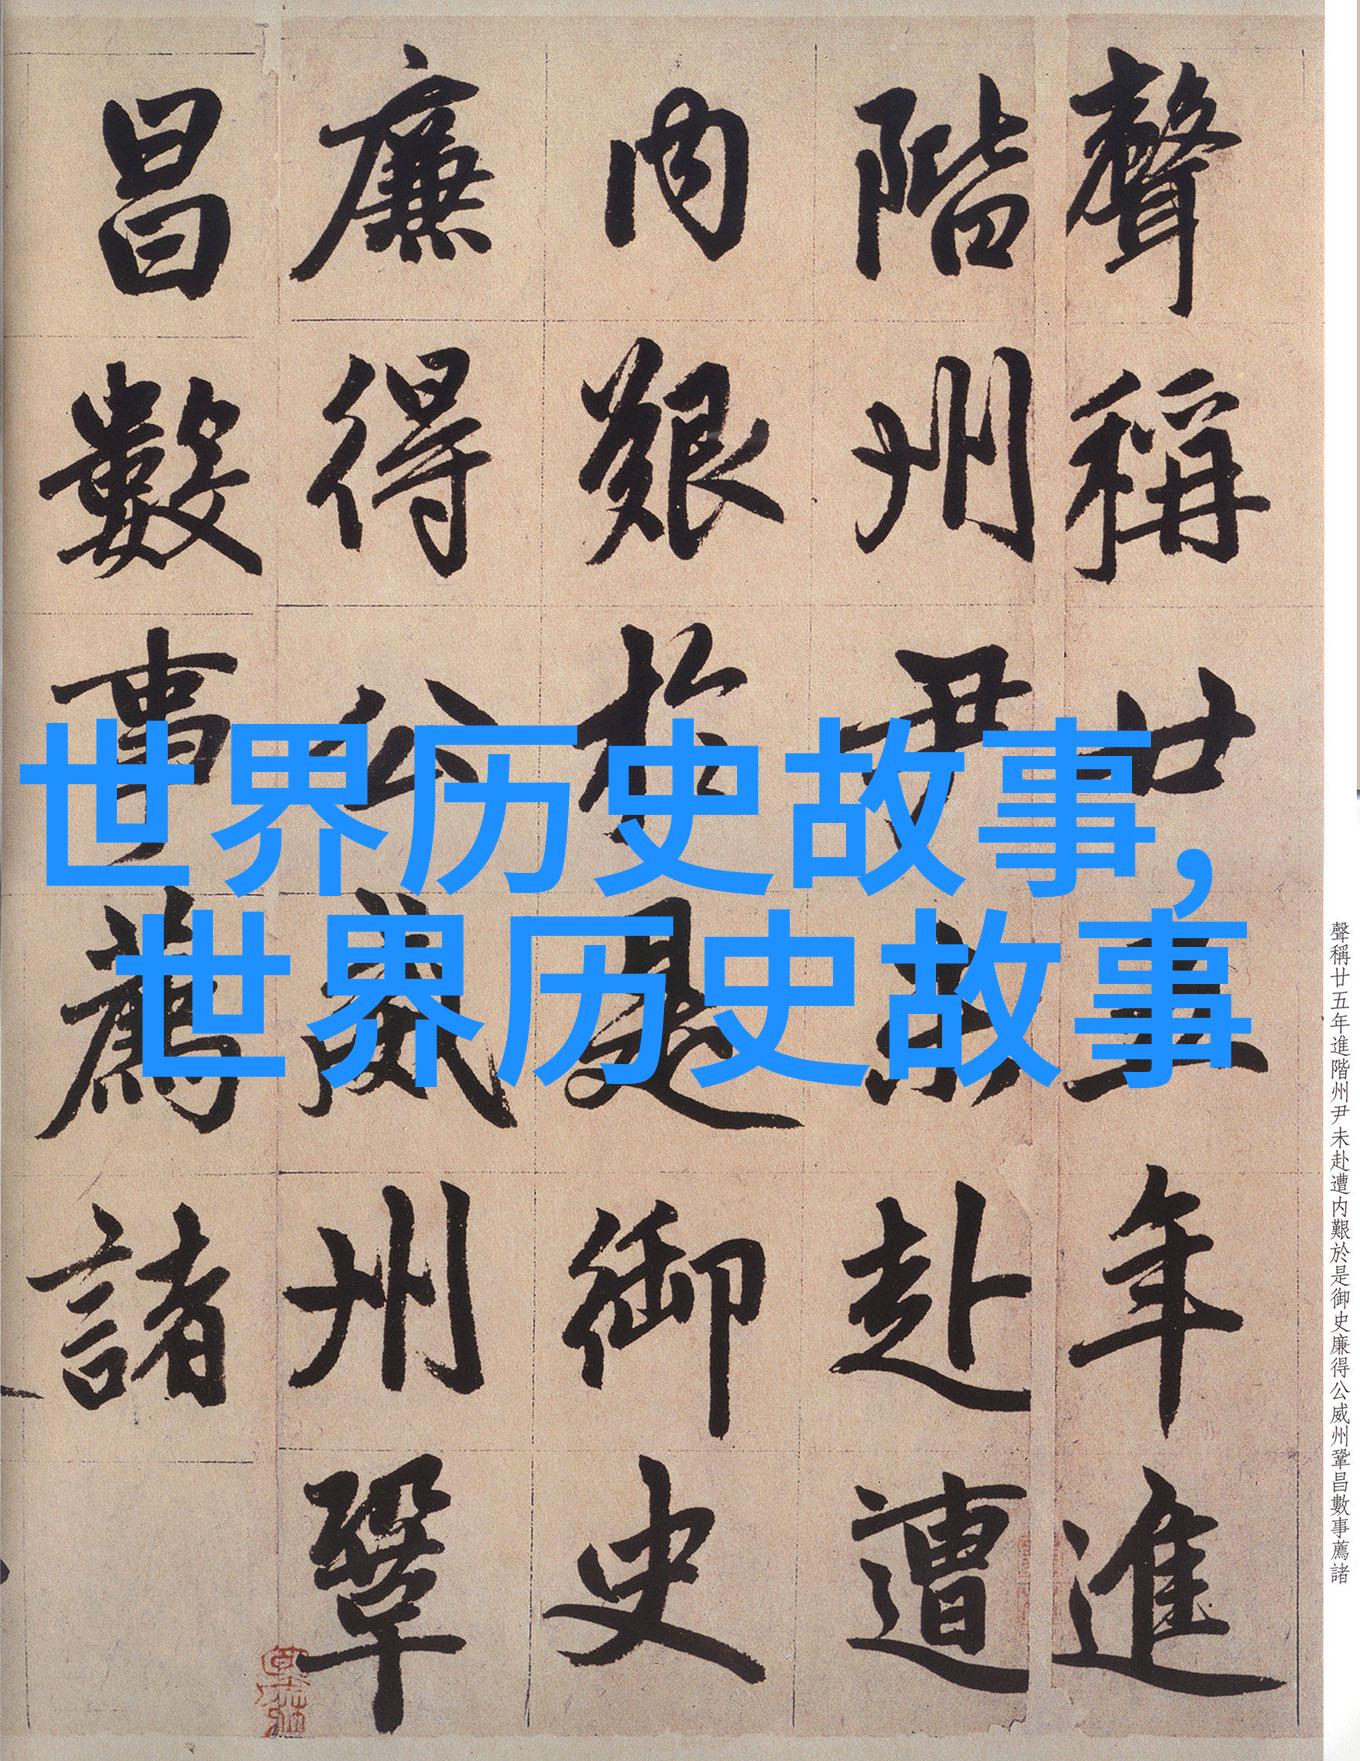 聲稱廿五年進
階州尹未赴遭
内艱於是御史
廉得公威州鞏
昌數事薦諸
世界历史故事,
世界历史故事
聲稱廿五年進階州尹未赴遭内艱於是御史廉得公威州鞏昌數事薦諸